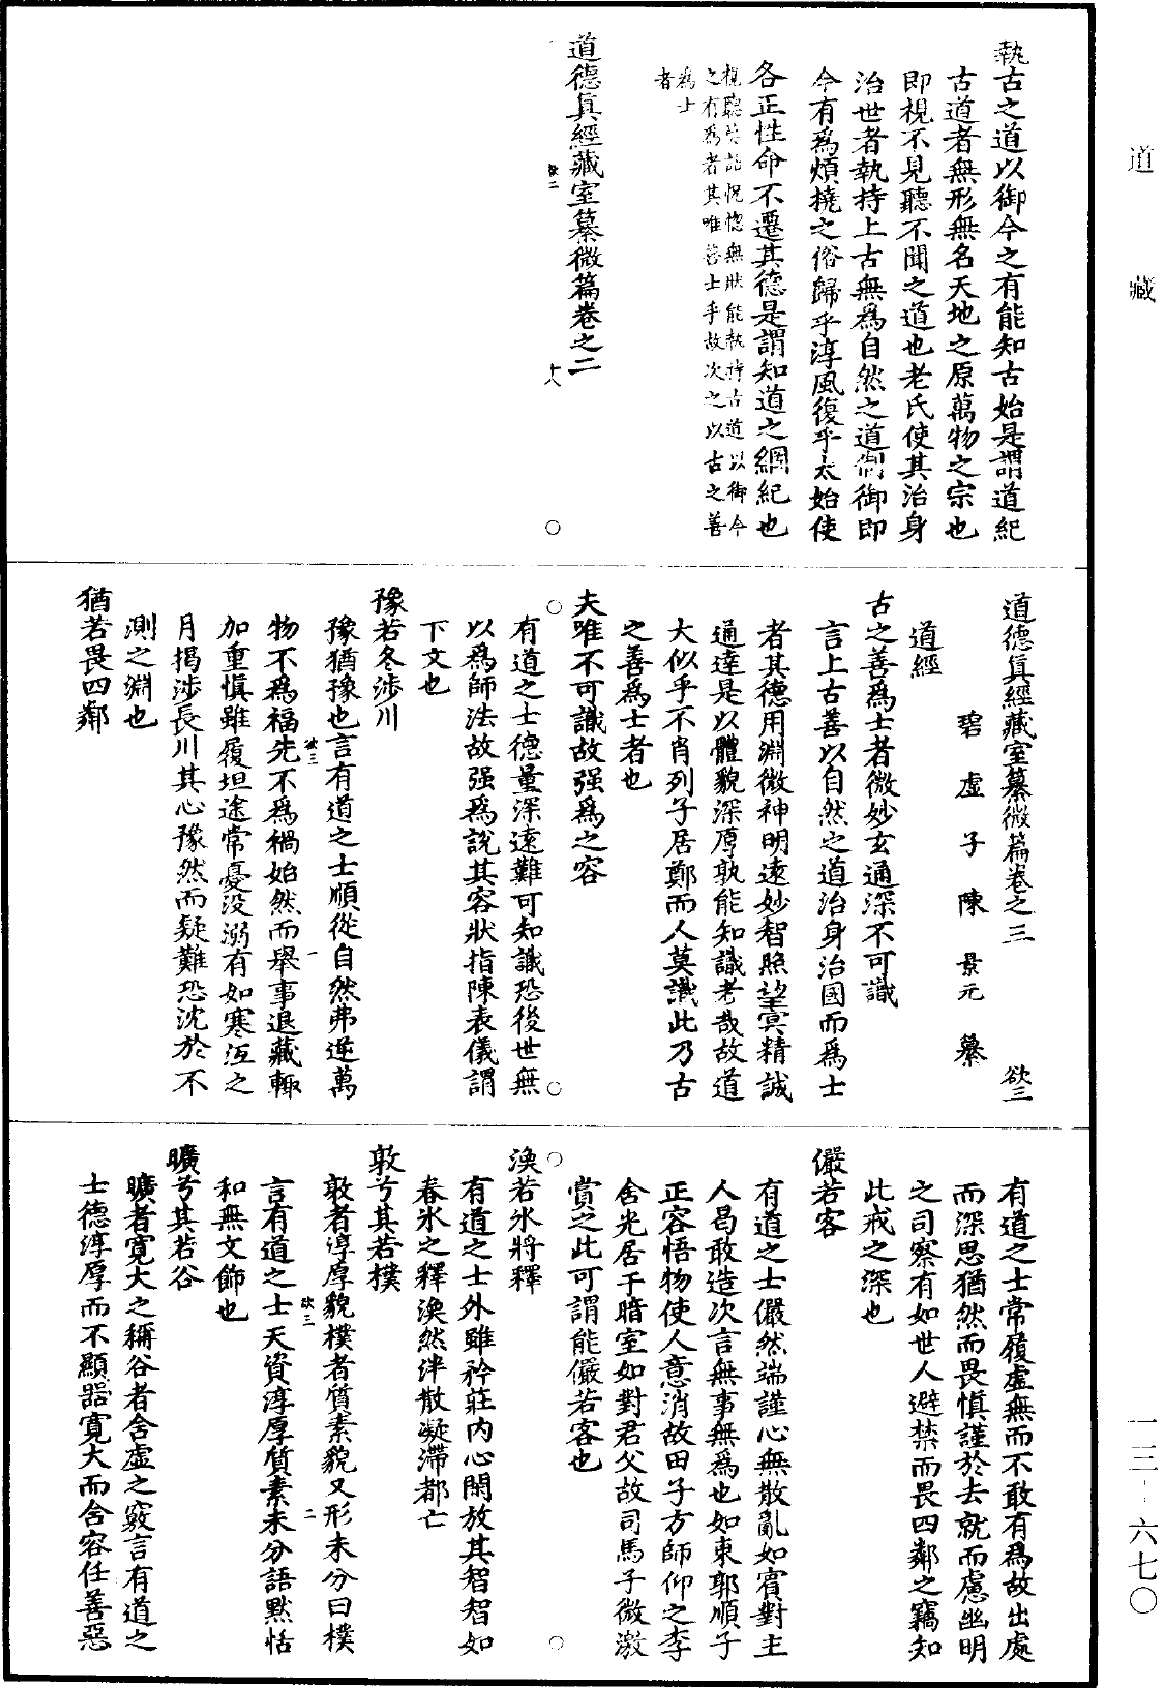 道藏
執古之道以御今之有能知古始是謂道紀
古道者無形無名天地之原萬物之宗也
即視不見聽不聞之道也老氏使其治身
治世者執持上古無爲自然之道制御即
今有爲煩撓之俗歸乎淳風復乎太始使
各正性命不遷其德是謂知道之綱紀也
視聽莫詰恍惚無狀能執持古道以御今
之有爲者其唯善士乎故次之以古之善
爲士
者
道德眞經藏室纂微篇卷之二
欲二 十八
道德眞經藏室纂微篇卷之三 欲三
碧虛子陳景元纂
道經
古之善爲士者微妙玄通深不可識
言上古善以自然之道治身治國而爲士
者其德用淵微神明遠妙智照望冥精誠
通達是以體貌深厚孰能知識者哉故道
大似乎不肖列子居鄭而人莫識此乃古
之善爲士者也
夫唯不可識故强爲之容
有道之士德量深遠難可知識恐後世無
以爲師法故强爲說其容狀指陳表儀謂
下文也
豫若冬涉川
豫猶豫也言有道之士順從自然弗逆萬
欲三 一
物不爲福先不爲禍始然而舉事退藏輙
加重愼雖履坦途常憂没溺有如寒冱之
月揭涉長川其心豫然而疑難恐沈於不
測之淵也
猶若畏四鄰
有道之士常履虛無而不敢有爲故出處
而深思猶然而畏愼謹於去就而慮幽明
之司察有如世人避禁而畏四鄰之竊知
此戒之深也
儼若客
有道之士儼然端謹心無散亂如賓對主
人曷敢造次言無事無爲也如東郭順子
正容悟物使人意消故田子方師仰之李
舍光居于暗室如對君父故司馬子微激
賞之此可謂能儼若客也
渙若氷將釋
有道之士外雖矜莊内心閑放其智智如
春氷之釋渙然泮散凝滯都亡
敦兮其若樸
敦者淳厚貌樸者質素貌又形未分曰樸
欲三 二
言有道之士天資淳厚質素未分語默恬
和無文飾也
曠兮其若谷
曠者寛大之稱谷者含虛之竅言有道之
士德淳厚而不顯器寛大而含容任善惡
一三—六七〇